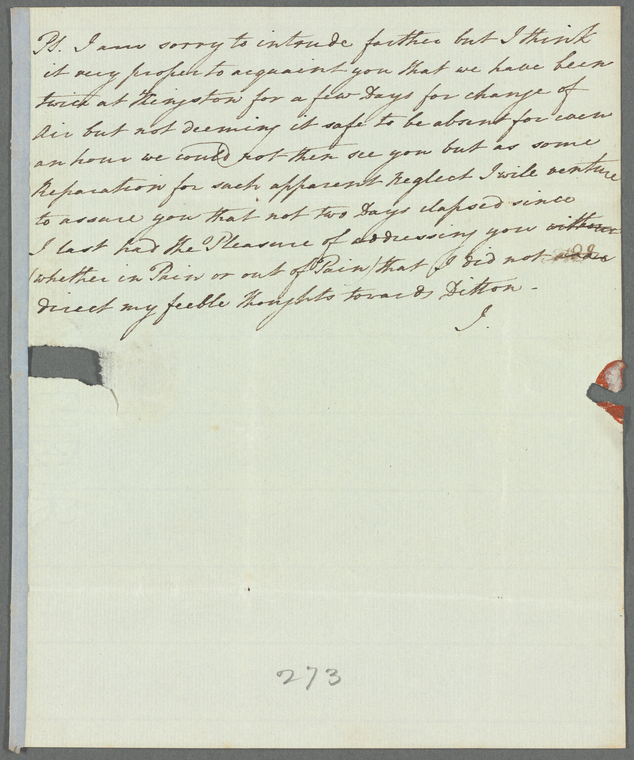 PS. I am sorry to intrude farther but I think
it very proper to acquaint you that we have been
twice at Kingston for a few Days for change of
Air but not deeming it safe to be absent for even
an hour we could not then see you but as some
Reparation for such apparent Neglect I will venture
to assure you that not two Days elapsed since
I last had the Pleasure of addressing you without
(whether in Pain or out of Pain) that I did not
direct my feeble thoughts towards Ditton -
J.
273